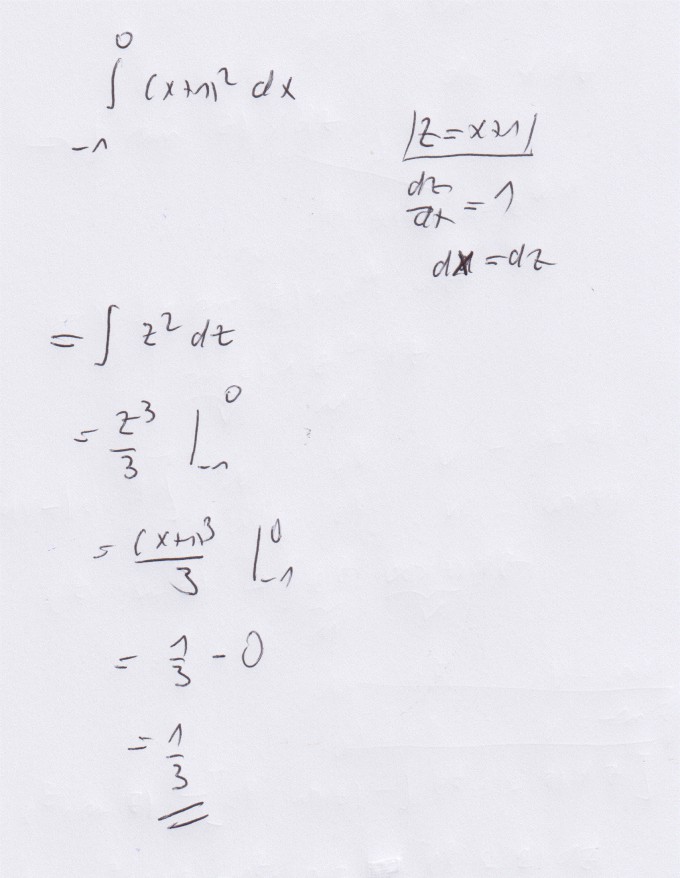 ∫_{-1}^{0} (x+1)² dx
|z = x+1|
dz/dx = 1
dx = dz
= ∫ z² dz
= z³/3 |_{-1}^{0}
= (x+1)³/3 |_{-1}^{0}
= 1/3 - 0
= 1/3